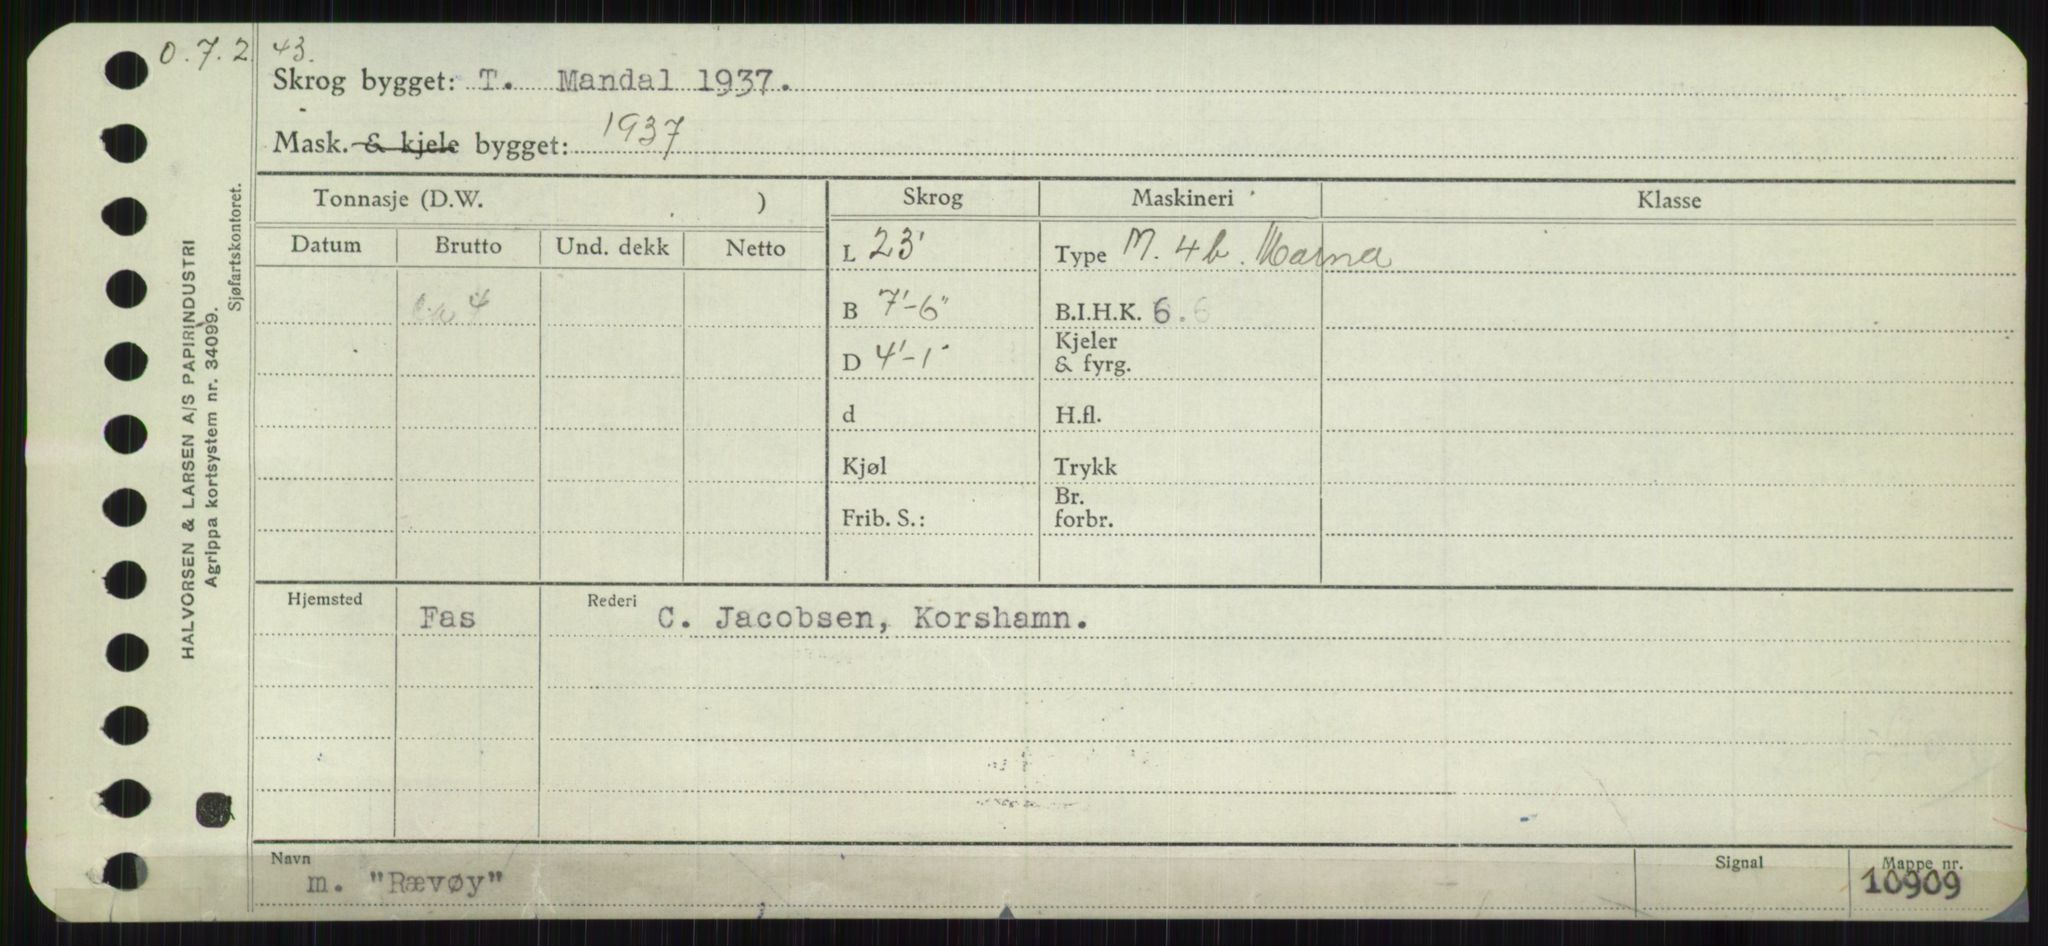 0.7.2.43.
Skrog bygget: T. Mandal 1937.
Mask. & kjele bygget: 1937
Tonnasje (D.W. )
Skrog
Maskineri
Klasse
Datum
Brutto
Und. dekk
Netto
L 23'
Type M. 4 h. Marna
ca 4
B 7'-6"
B.I.H.K. 6.6
D 4'-1"
Kjeler
& fyrg.
d
H.fl.
Kjøl
Trykk
Frib. S.:
Br.
forbr.
Hjemsted
Fas
Rederi
C. Jacobsen, Korshamn.
Navn
m. "Rævøy"
Signal
Mappe nr.
10909
HALVORSEN & LARSEN A/S PAPIRINDUSTRI
Agrippa kortsystem nr. 34099.
Sjøfartskontoret.